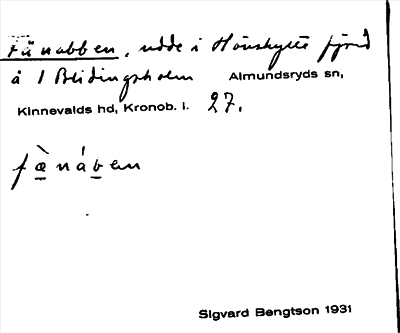 Fänabben, udde i Hönshylte fjord
å 1 Bleidingsholm Almundsryds sn,
Kinnevalds hd, Kronob. l. 27.
fæ̀náben
Sigvard Bengtson 1931